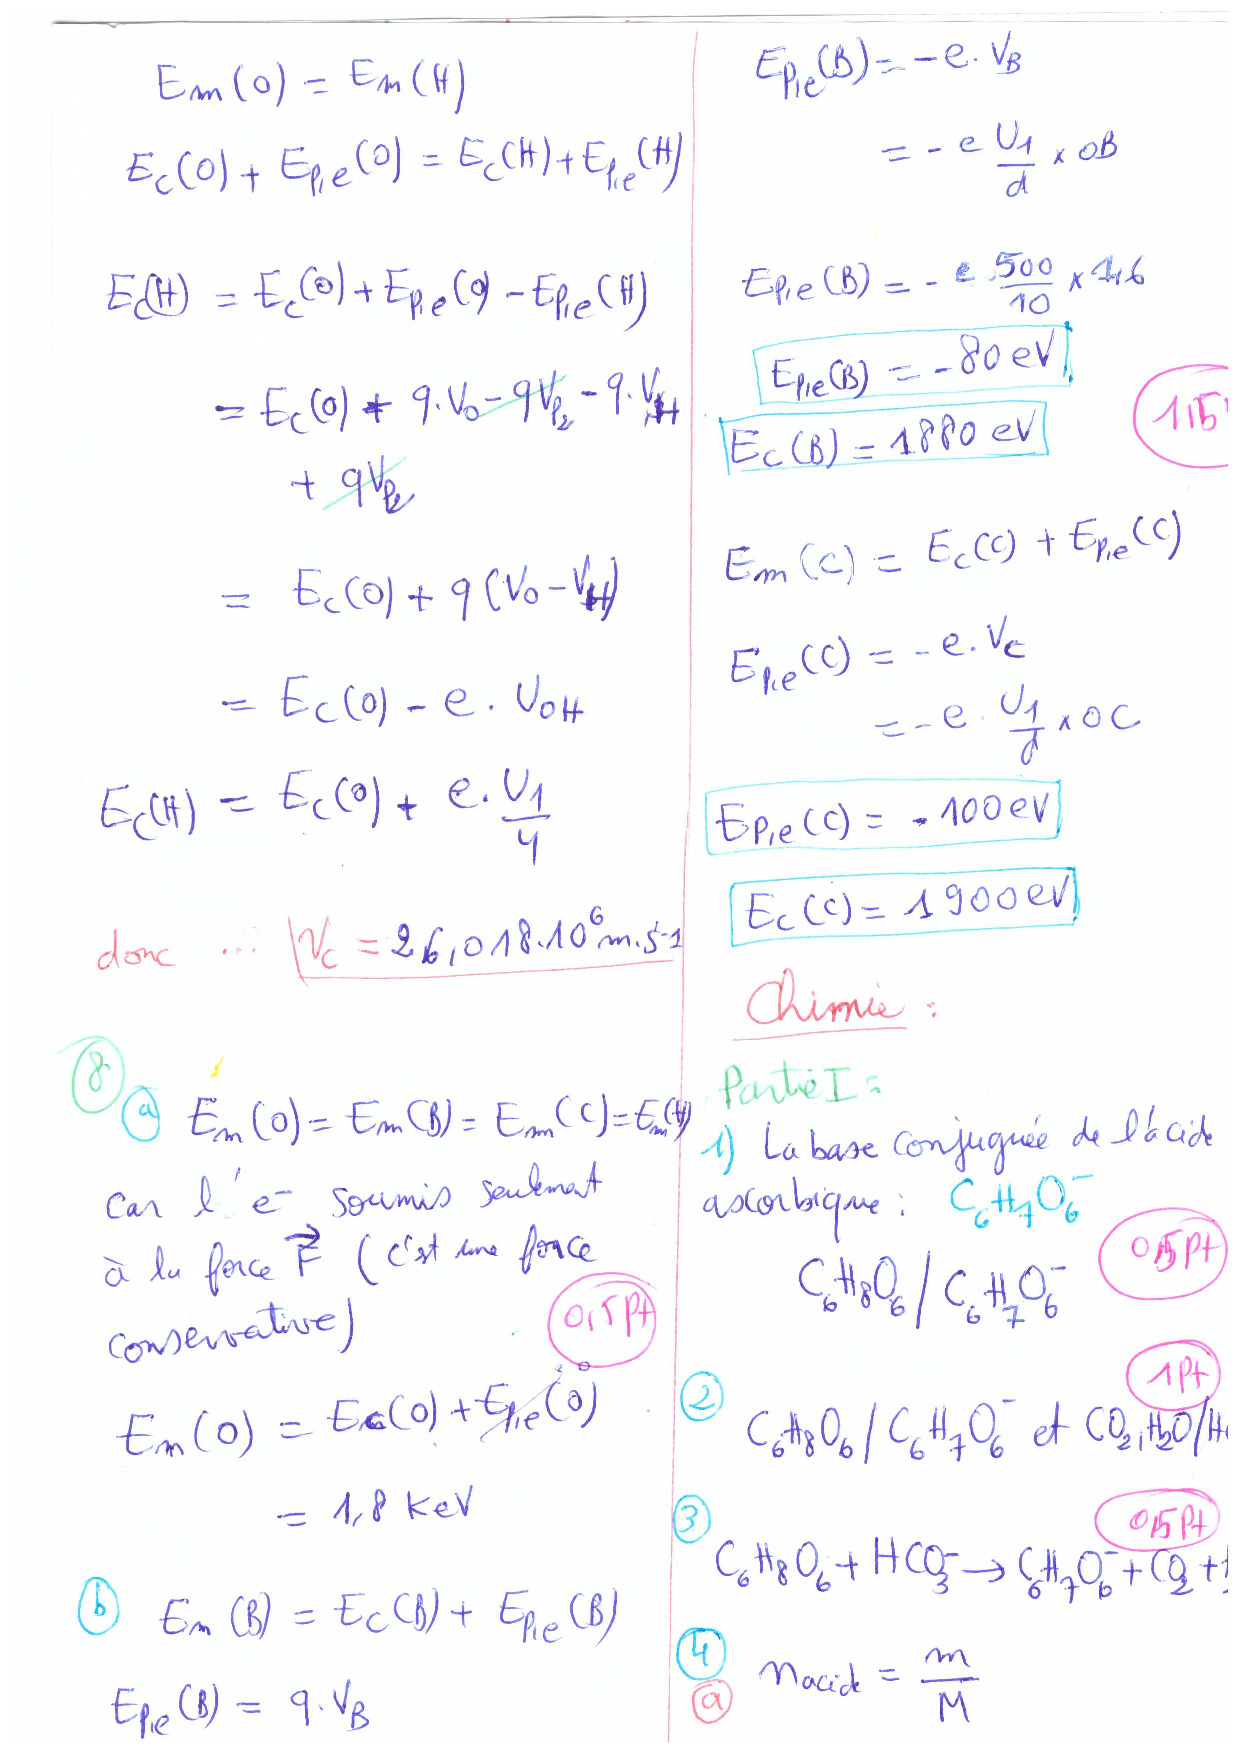 Em(O) = Em(H)
Ec(O) + Ep,e(O) = Ec(H) + Ep,e(H)
Ec(H) = Ec(O) + Ep,e(O) - Ep,e(H)
= Ec(O) + q.V_O - qV_P2 - q.V_H
+ qV_P2
= Ec(O) + q(V_O - V_H)
= Ec(O) - e. U_OH
Ec(H) = Ec(O) + e. U_1/4
donc ... V_C = 26,018.10^6 m.s^-1
8
a Em(O) = Em(B) = Em(C) = Em(H)
car l'e^- soumis seulement
à la force F (c'est une force
conservative)
0,5 pt
Em(O) = Ec(O) + Ep,e(O) = 0
= 1,8 KeV
b Em(B) = Ec(B) + Ep,e(B)
Ep,e(B) = q.V_B
Ep,e(B) = -e. V_B
= -e U_1/d x OB
Ep,e(B) = -e 500/10 x 1,6
Ep,e(B) = -80 eV
1,5
Ec(B) = 1880 eV
Em(C) = Ec(C) + Ep,e(C)
Ep,e(C) = -e. V_C
= -e. U_1/d x OC
Ep,e(C) = -100 eV
Ec(C) = 1900 eV
Chimie :
Partie I :
1) La base conjuguée de l'acide
ascorbique : C6H7O6^-
0,5 pt
C6H8O6 / C6H7O6^-
1 pt
2
C6H8O6 / C6H7O6^- et CO2,H2O/H
0,5 pt
3
C6H8O6 + HCO3^- → C6H7O6^- + CO2 +
4
a n acide = m/M